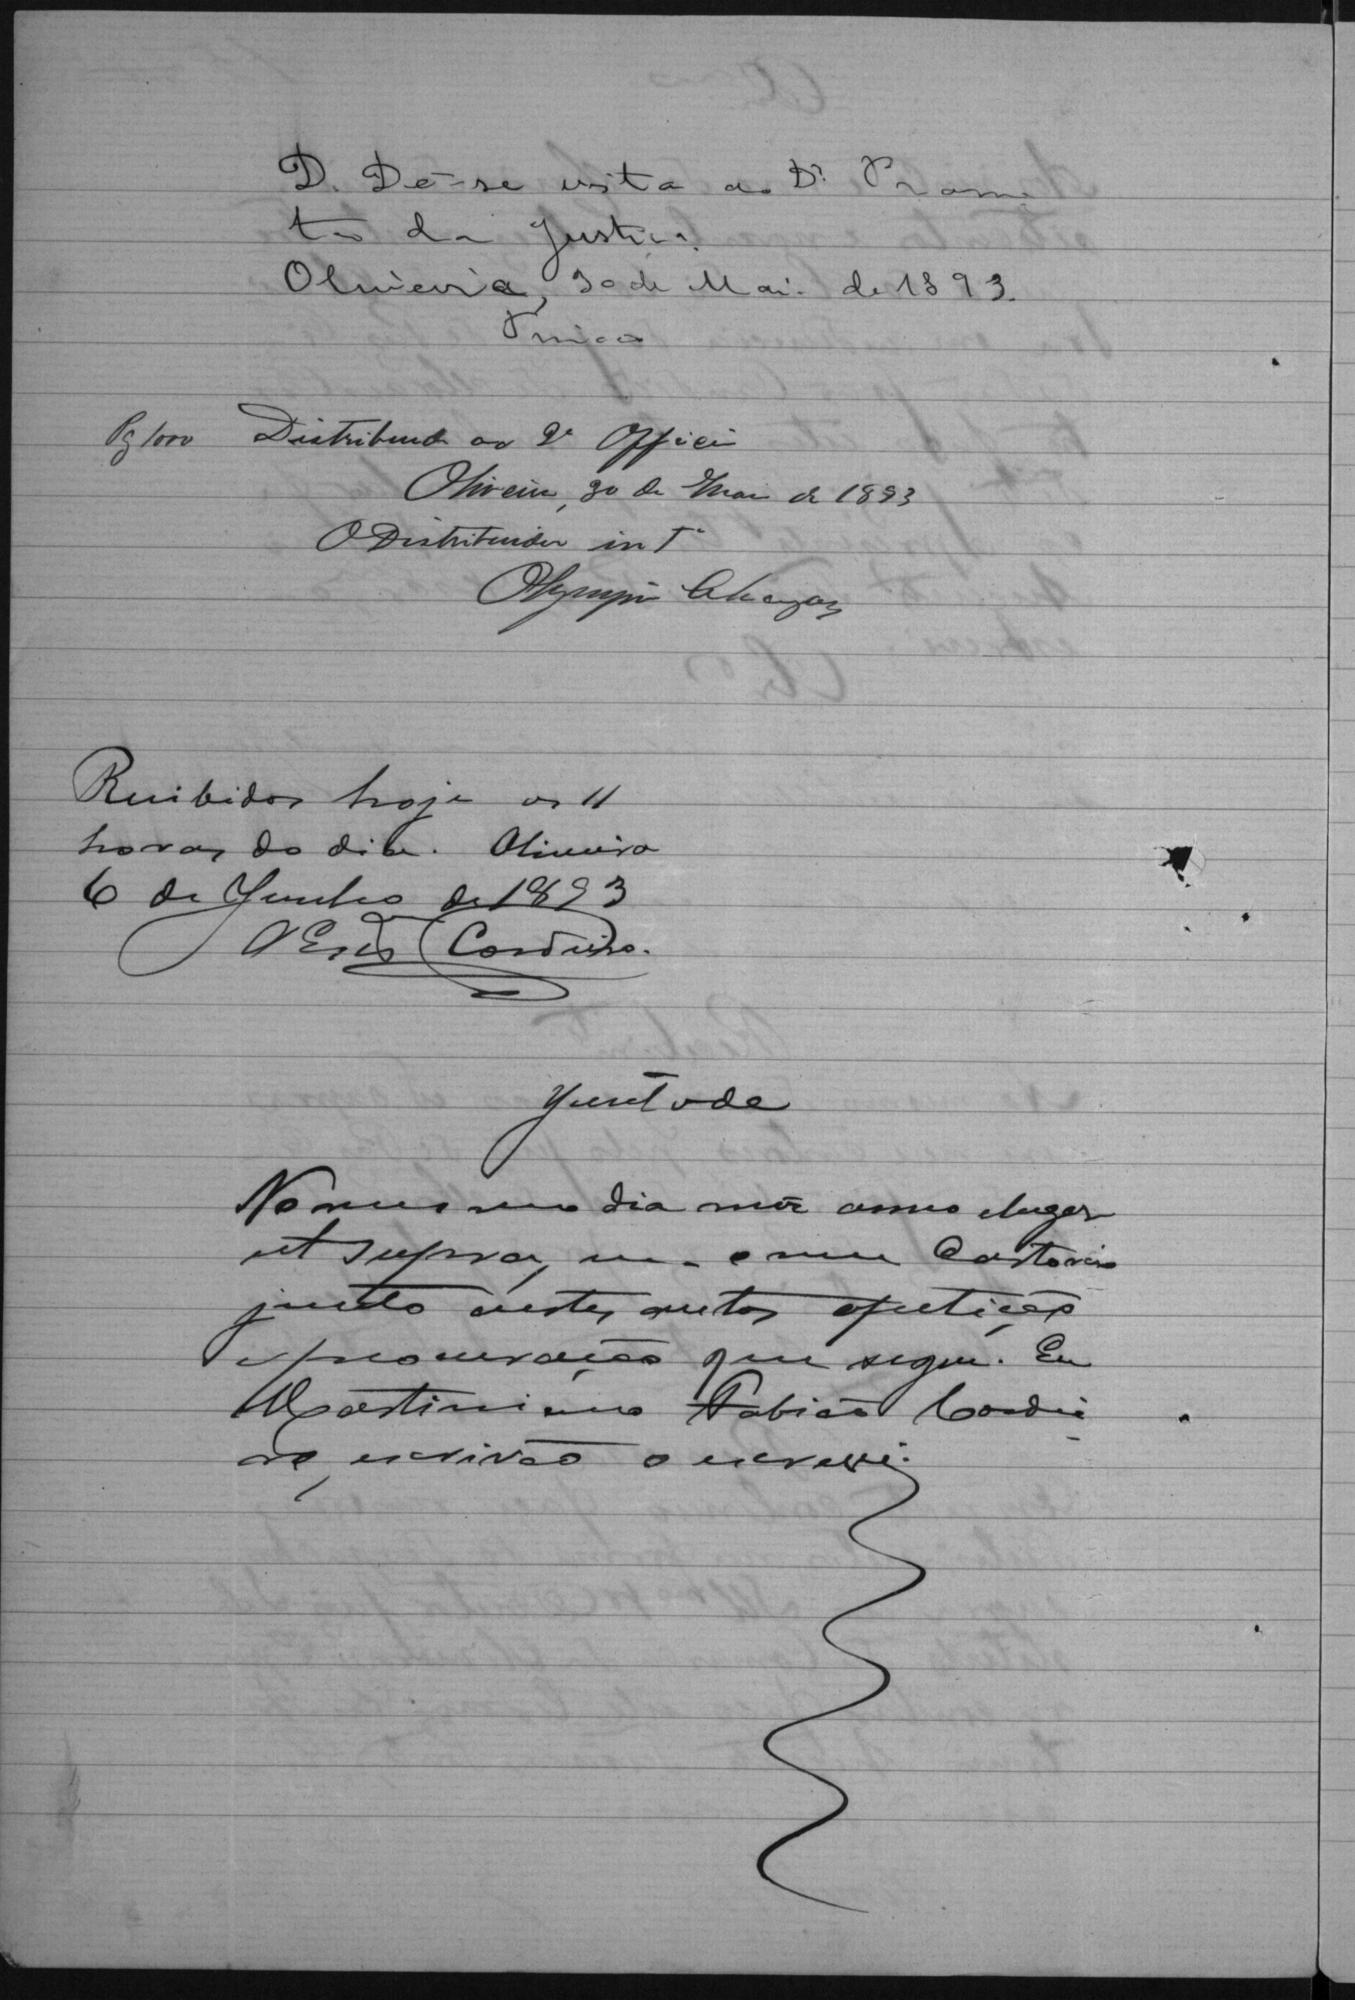 D. Dê-se vista ao Dr. Promo
tor da Justiça.
Oliveira, 30 de Maio de 1893.
Pg 1000 Distribuido ao 2º Officio
Oliveira, 30 de Maio de 1893
O Distribuidor intº
Olympio
Recibidos hoje as 11
horas do dia. Oliveira
6 de Junho de 1893
O Esc.ão Cordeiro.
Juntada
No mesmo dia mez anno elugar
ut supra, em o meu Cartorio
junto á estes autos apetição
eprocuração que segue. Eu
Martiniano Fabião Cordei
ro, escrivão o escrevi.